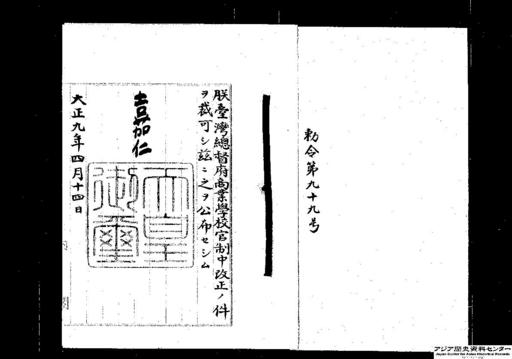 勅令第九十九号
朕臺灣總督府商業學校官制中改正ノ件
ヲ裁可シ茲ニ之ヲ公布セシム
嘉仁
天皇
御璽
大正九年四月十四日
アジア歴史資料センター
Japan Center for Asian Historical Records